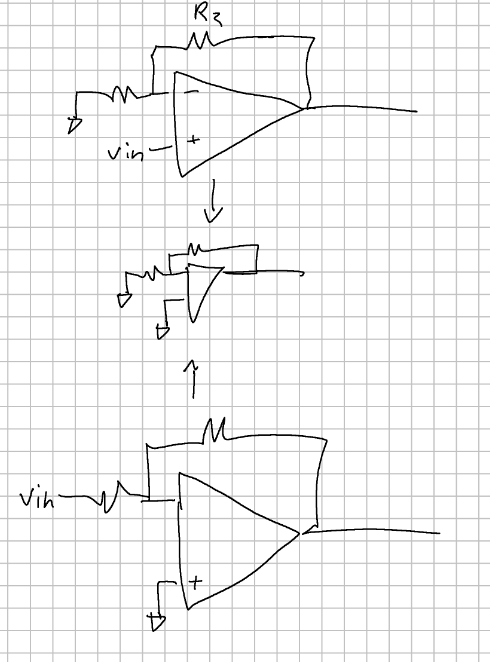 R2
-
+
Vin
Vin
+